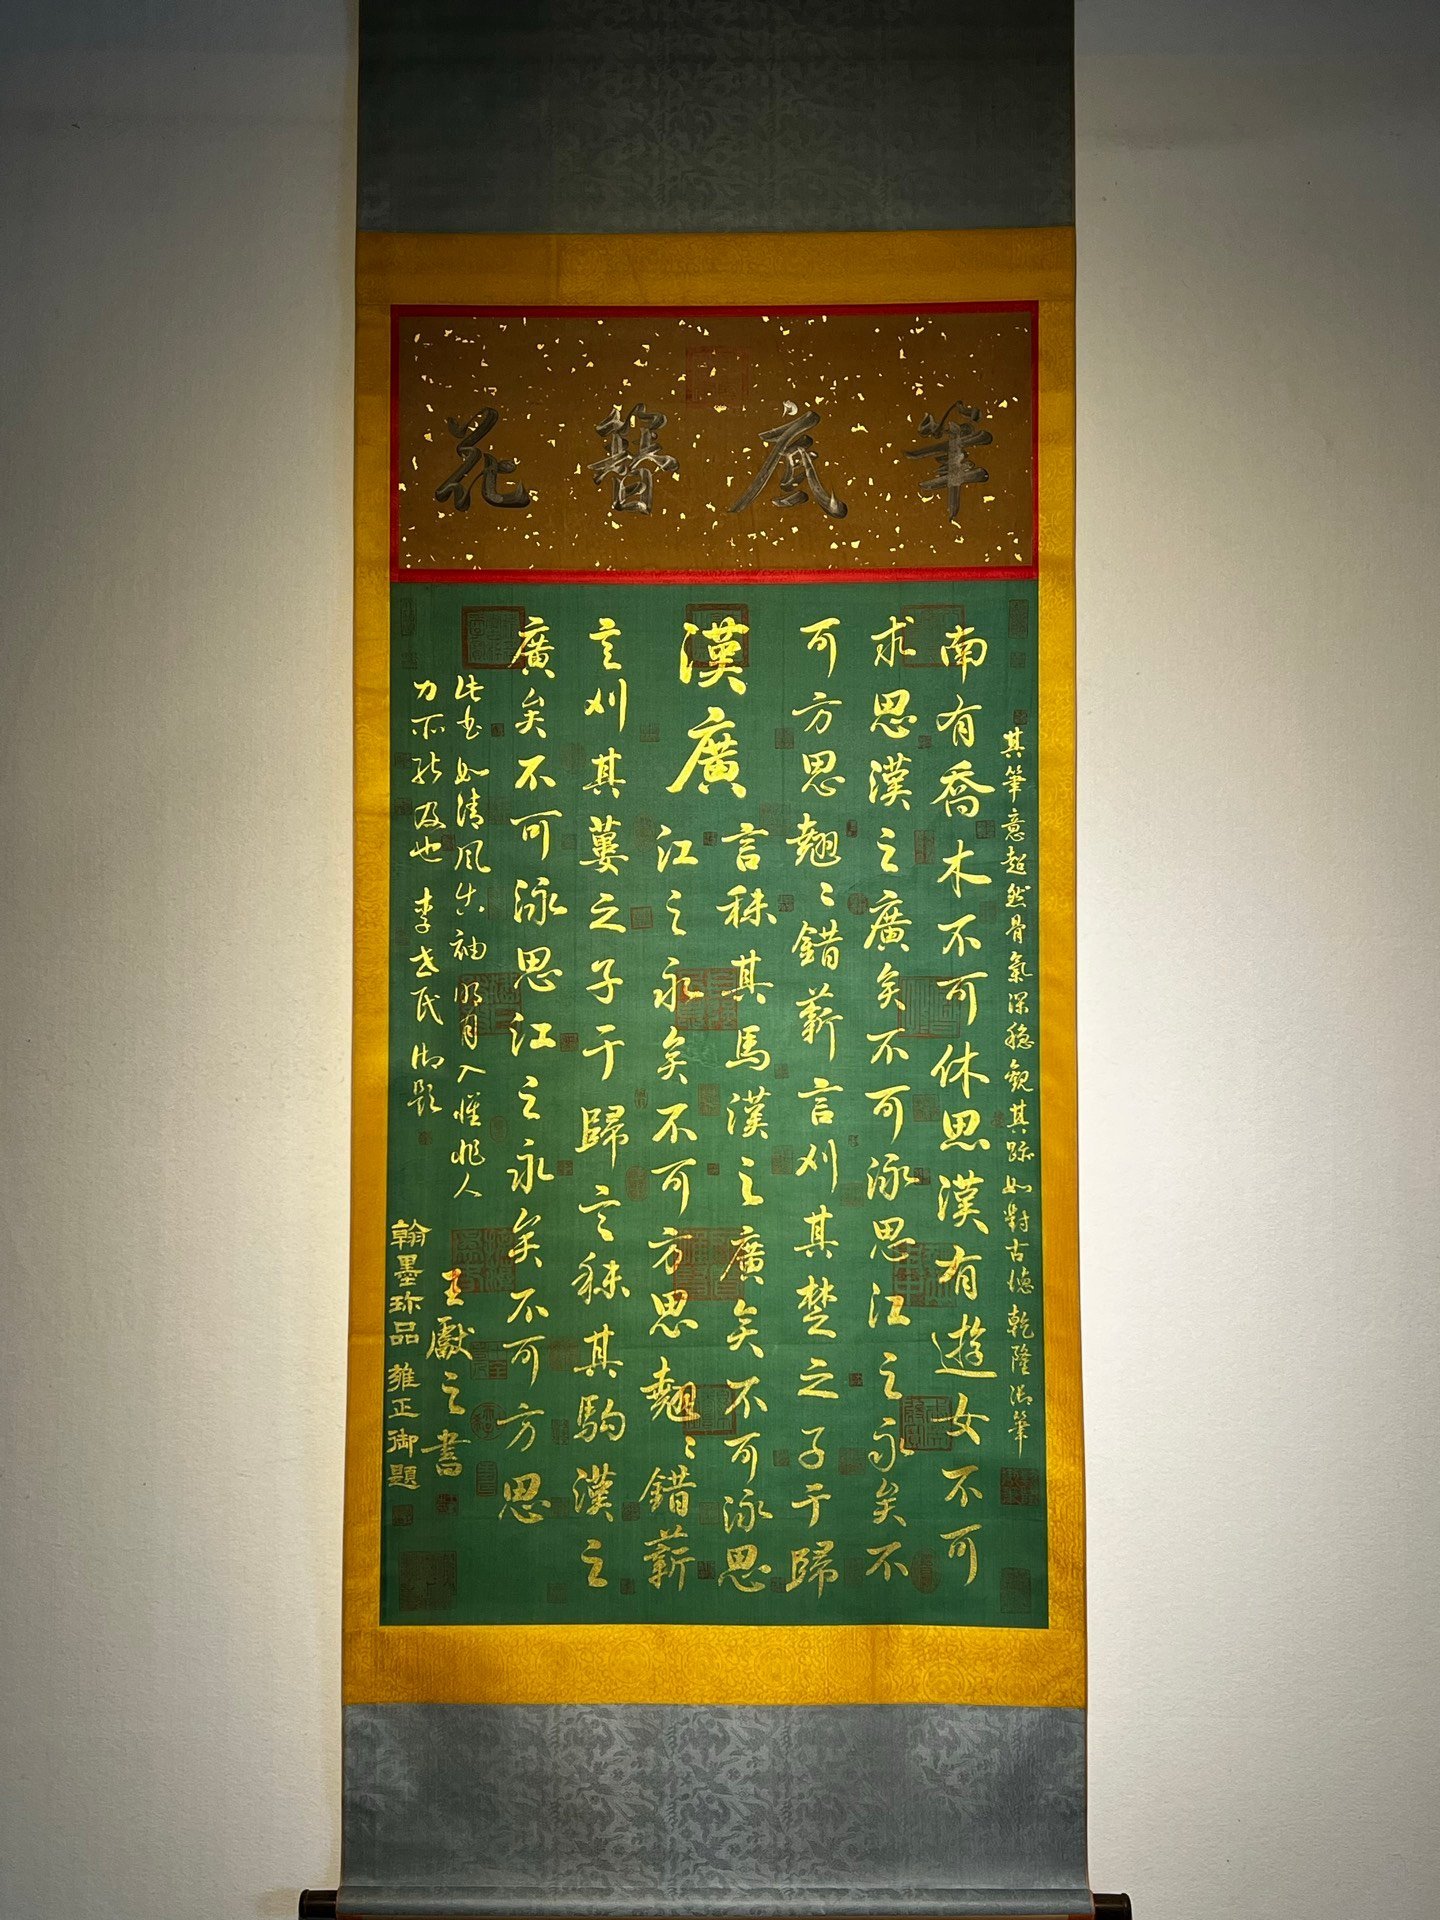 筆底簪花
其筆意超然骨氣深穩觀其跡如對古德乾隆御筆
南有喬木不可休思漢有遊女不可
求思漢之廣矣不可泳思江之永矣不
可方思翹〻錯薪言刈其楚之子于歸
漢廣
言秣其馬漢之廣矣不可泳思
江之永矣不可方思翹〻錯薪
言刈其蔞之子于歸言秣其駒漢之
廣矣不可泳思江之永矣不可方思
此書如清風出袖明月入懷非人
力所能及也李世民御題
王獻之書
翰墨珍品雍正御題